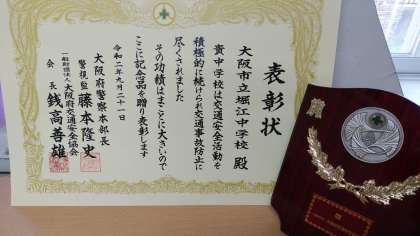 表彰状
大阪市立堀江中学校 殿
貴中学校は交通安全活動を
積極的に続けられ交通事故防止に
尽くされました
その功績はまことに大きいので
ここに記念品を贈り表彰します
令和二年九月二十一日
大阪府警察本部長
警視監 藤本隆史
一般財団法人 大阪府交通安全協会
会長 銭高善雄